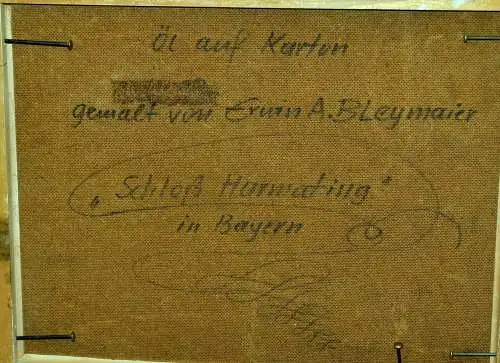 Öl auf Karton
gemalt von Erwin A. Bleymaier
„Schloß Harmating"
in Bayern